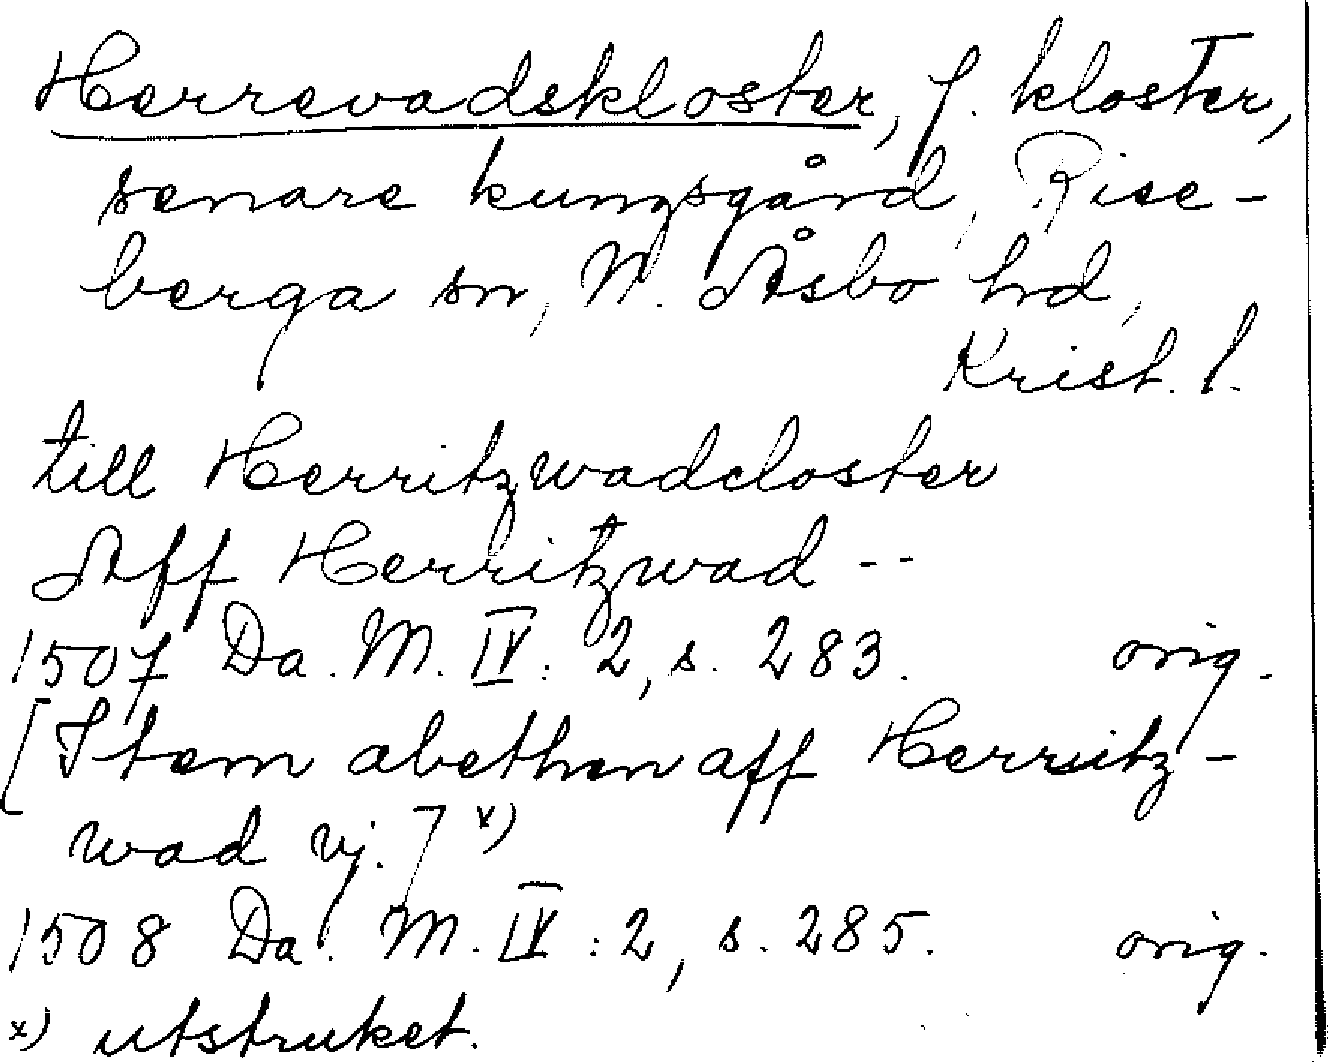 Herrevadskloster, f. kloster,
senare kungsgård, Rise-
berga sn, N. Åsbo hd,
Krist. l.
till Herritzwadcloster
Aff Herritzwad --
1507 Da. M. IV: 2, s. 283. orig.
[Item abethen aff Herritz-
wad vj.] x)
1508 Da. M. IV: 2, s. 285. orig.
x) utstruket.